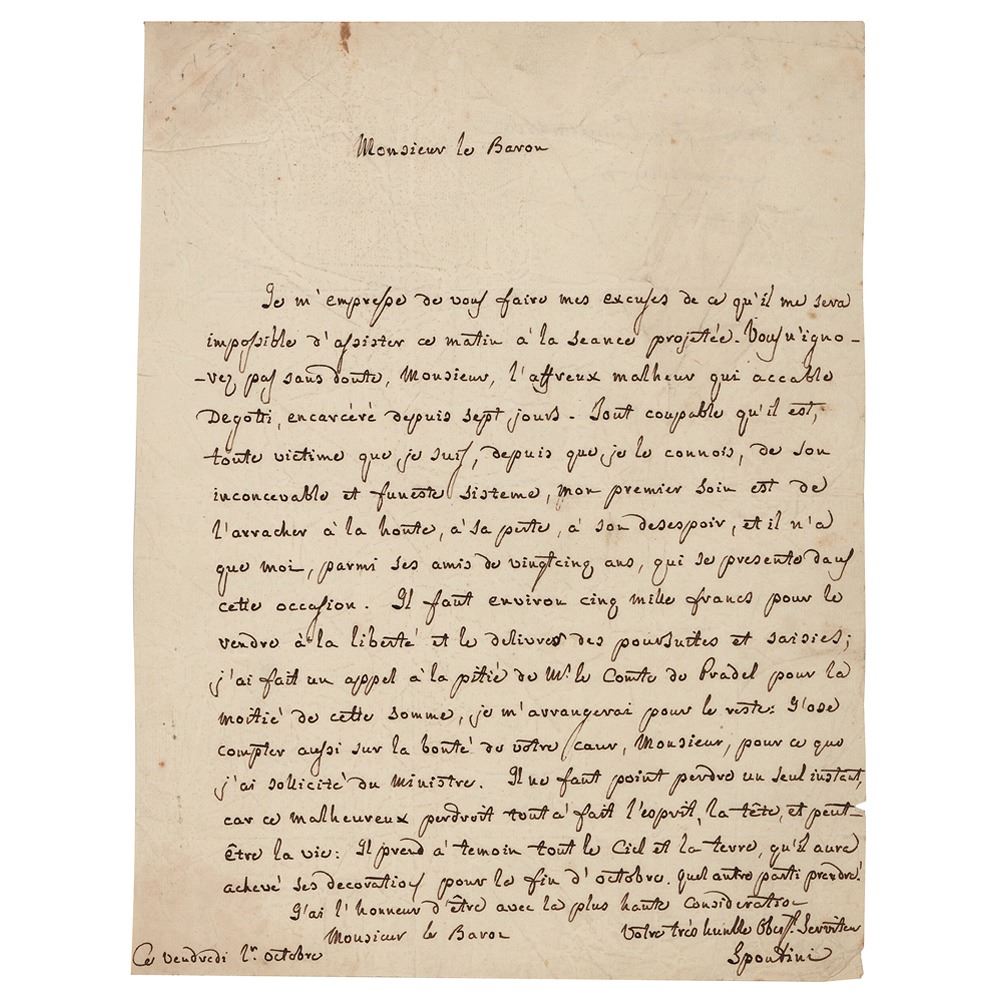 Monsieur le Baron
Je m'empresse de vous faire mes excuses de ce qu'il me sera
impossible d'assister ce matin à la seance projetée. Vous n'igno-
-rez pas sans doute, Monsieur, l'affreux malheur qui accable
Degotti, encarcéré depuis sept jours. Tout coupable qu'il est,
toute victime que je suis, depuis que je le connois, de son
inconcevable et funeste sisteme, mon premier soin est de
l'arracher à la honte, à sa perte, à son desespoir, et il n'a
que moi, parmi ses amis de vingtcinq ans, qui se presente dans
cette occasion. Il faut environ cinq mille francs pour le
rendre à la liberté et le delivrer des poursuites et saisies;
j'ai fait un appel à la pitié de Mr. le Comte de Pradel pour la
moitié de cette somme, je m'arrangerai pour le reste: J'ose
compter aussi sur la bonté de votre cœur, Monsieur, pour ce que
j'ai sollicité du Ministre. Il ne faut point perdre un seul instant,
car ce malheureux perdroit tout à fait l'esprit, la tête, et peut-
être la vie: Il prend à temoin tout le Ciel et la terre, qu'il aura
achevé ses decorations pour la fin d'octobre. quel autre parti prendre!
J'ai l'honneur d'être avec la plus haute Consideration
Monsieur le Baron Votre très humble Obeisst. Serviteur
Ce vendredi 1er. octobre Spontini